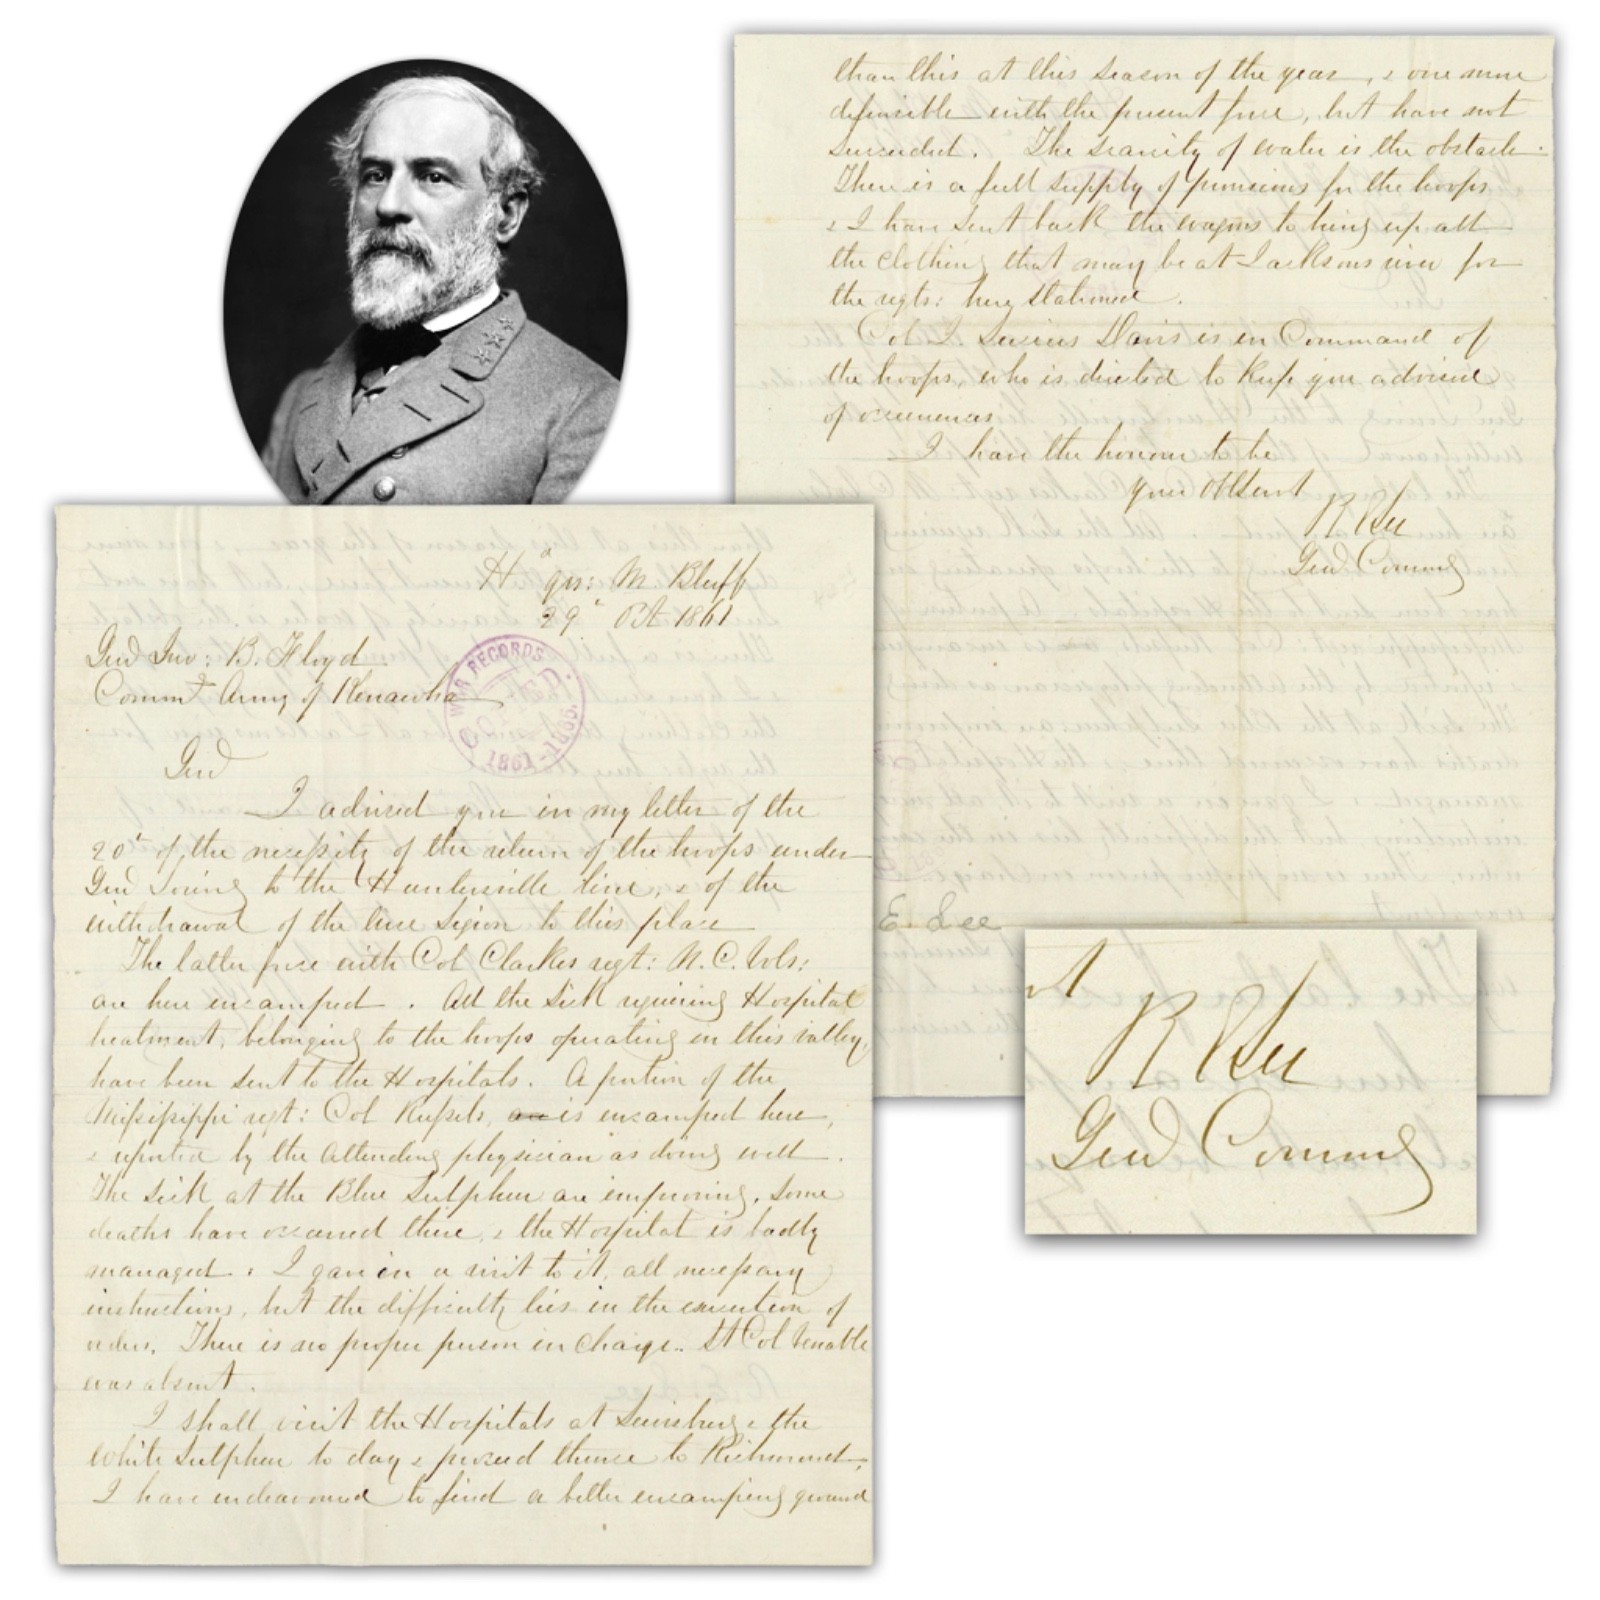 Hd qrs: M. Bluff
29' Oct 1861
Genl Jno: B. Floyd
Commg Army of Kenawha
WAR RECORDS
1861-1865.
Genl
I advised you in my letter of the
20' of the necessity of the return of the troops under
Genl Loring to the Huntersville line, & of the
withdrawal of the Wise Legion to this place
The latter force with Col Clarkes regt: N.C. Vols:
are here encamped. All the sick requiring Hospital
treatment, belonging to the troops operating in this valley,
have been sent to the Hospitals. A portion of the
Mississippi regt: Col Russels, is encamped here,
& reported by the attending physician as doing well.
The sick at the Blue Sulphur are improving. Some
deaths have occurred there, & the Hospital is badly
managed. I gave in a visit to it, all necessary
instructions, but the difficulty lies in the execution of
orders. There is no proper person in charge. Lt Col Venable
was absent.
I shall visit the Hospitals at Lewisburg & the
White Sulphur to day & proceed thence to Richmond,
I have endeavoured to find a better encamping ground
than this at this season of the year, & one more
defensible with the present force, but have not
succeeded. The scarcity of water is the obstacle.
There is a full supply of provisions for the troops
& I have sent back the wagons to bring up all
the clothing that may be at Jacksons river for
the regts: here stationed.
Col J. Lucius Davis is in Command of
the troops, who is directed to keep you advised
of occurrences
I have the honour to be
your obt servt
R E Lee
Genl Commg
E. Lee
R E Lee
Genl Commg